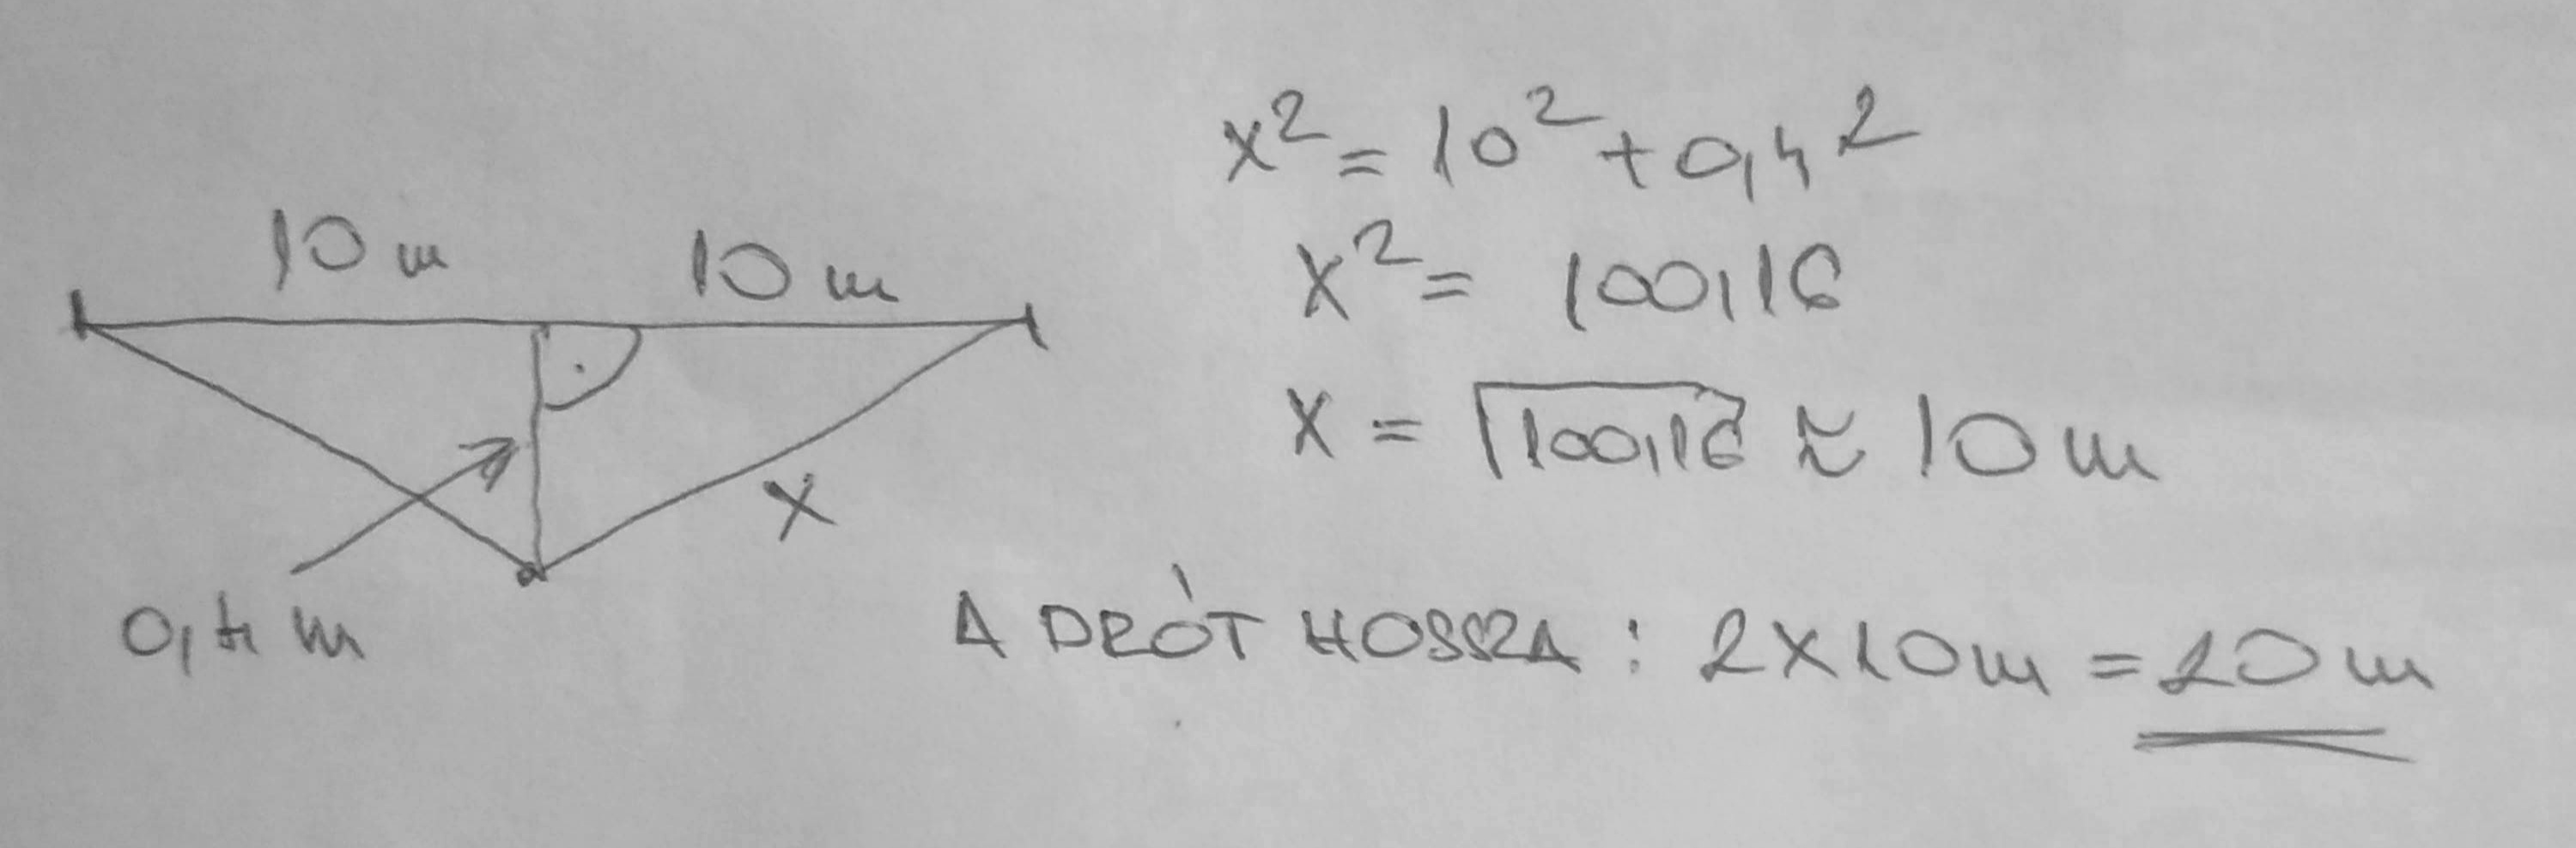 10 m 10 m
0,4 m
x
x² = 10² + 0,4²
x² = 100,16
x = √100,16 ≈ 10 m
A DRÓT HOSSZA : 2 x 10 m = 20 m